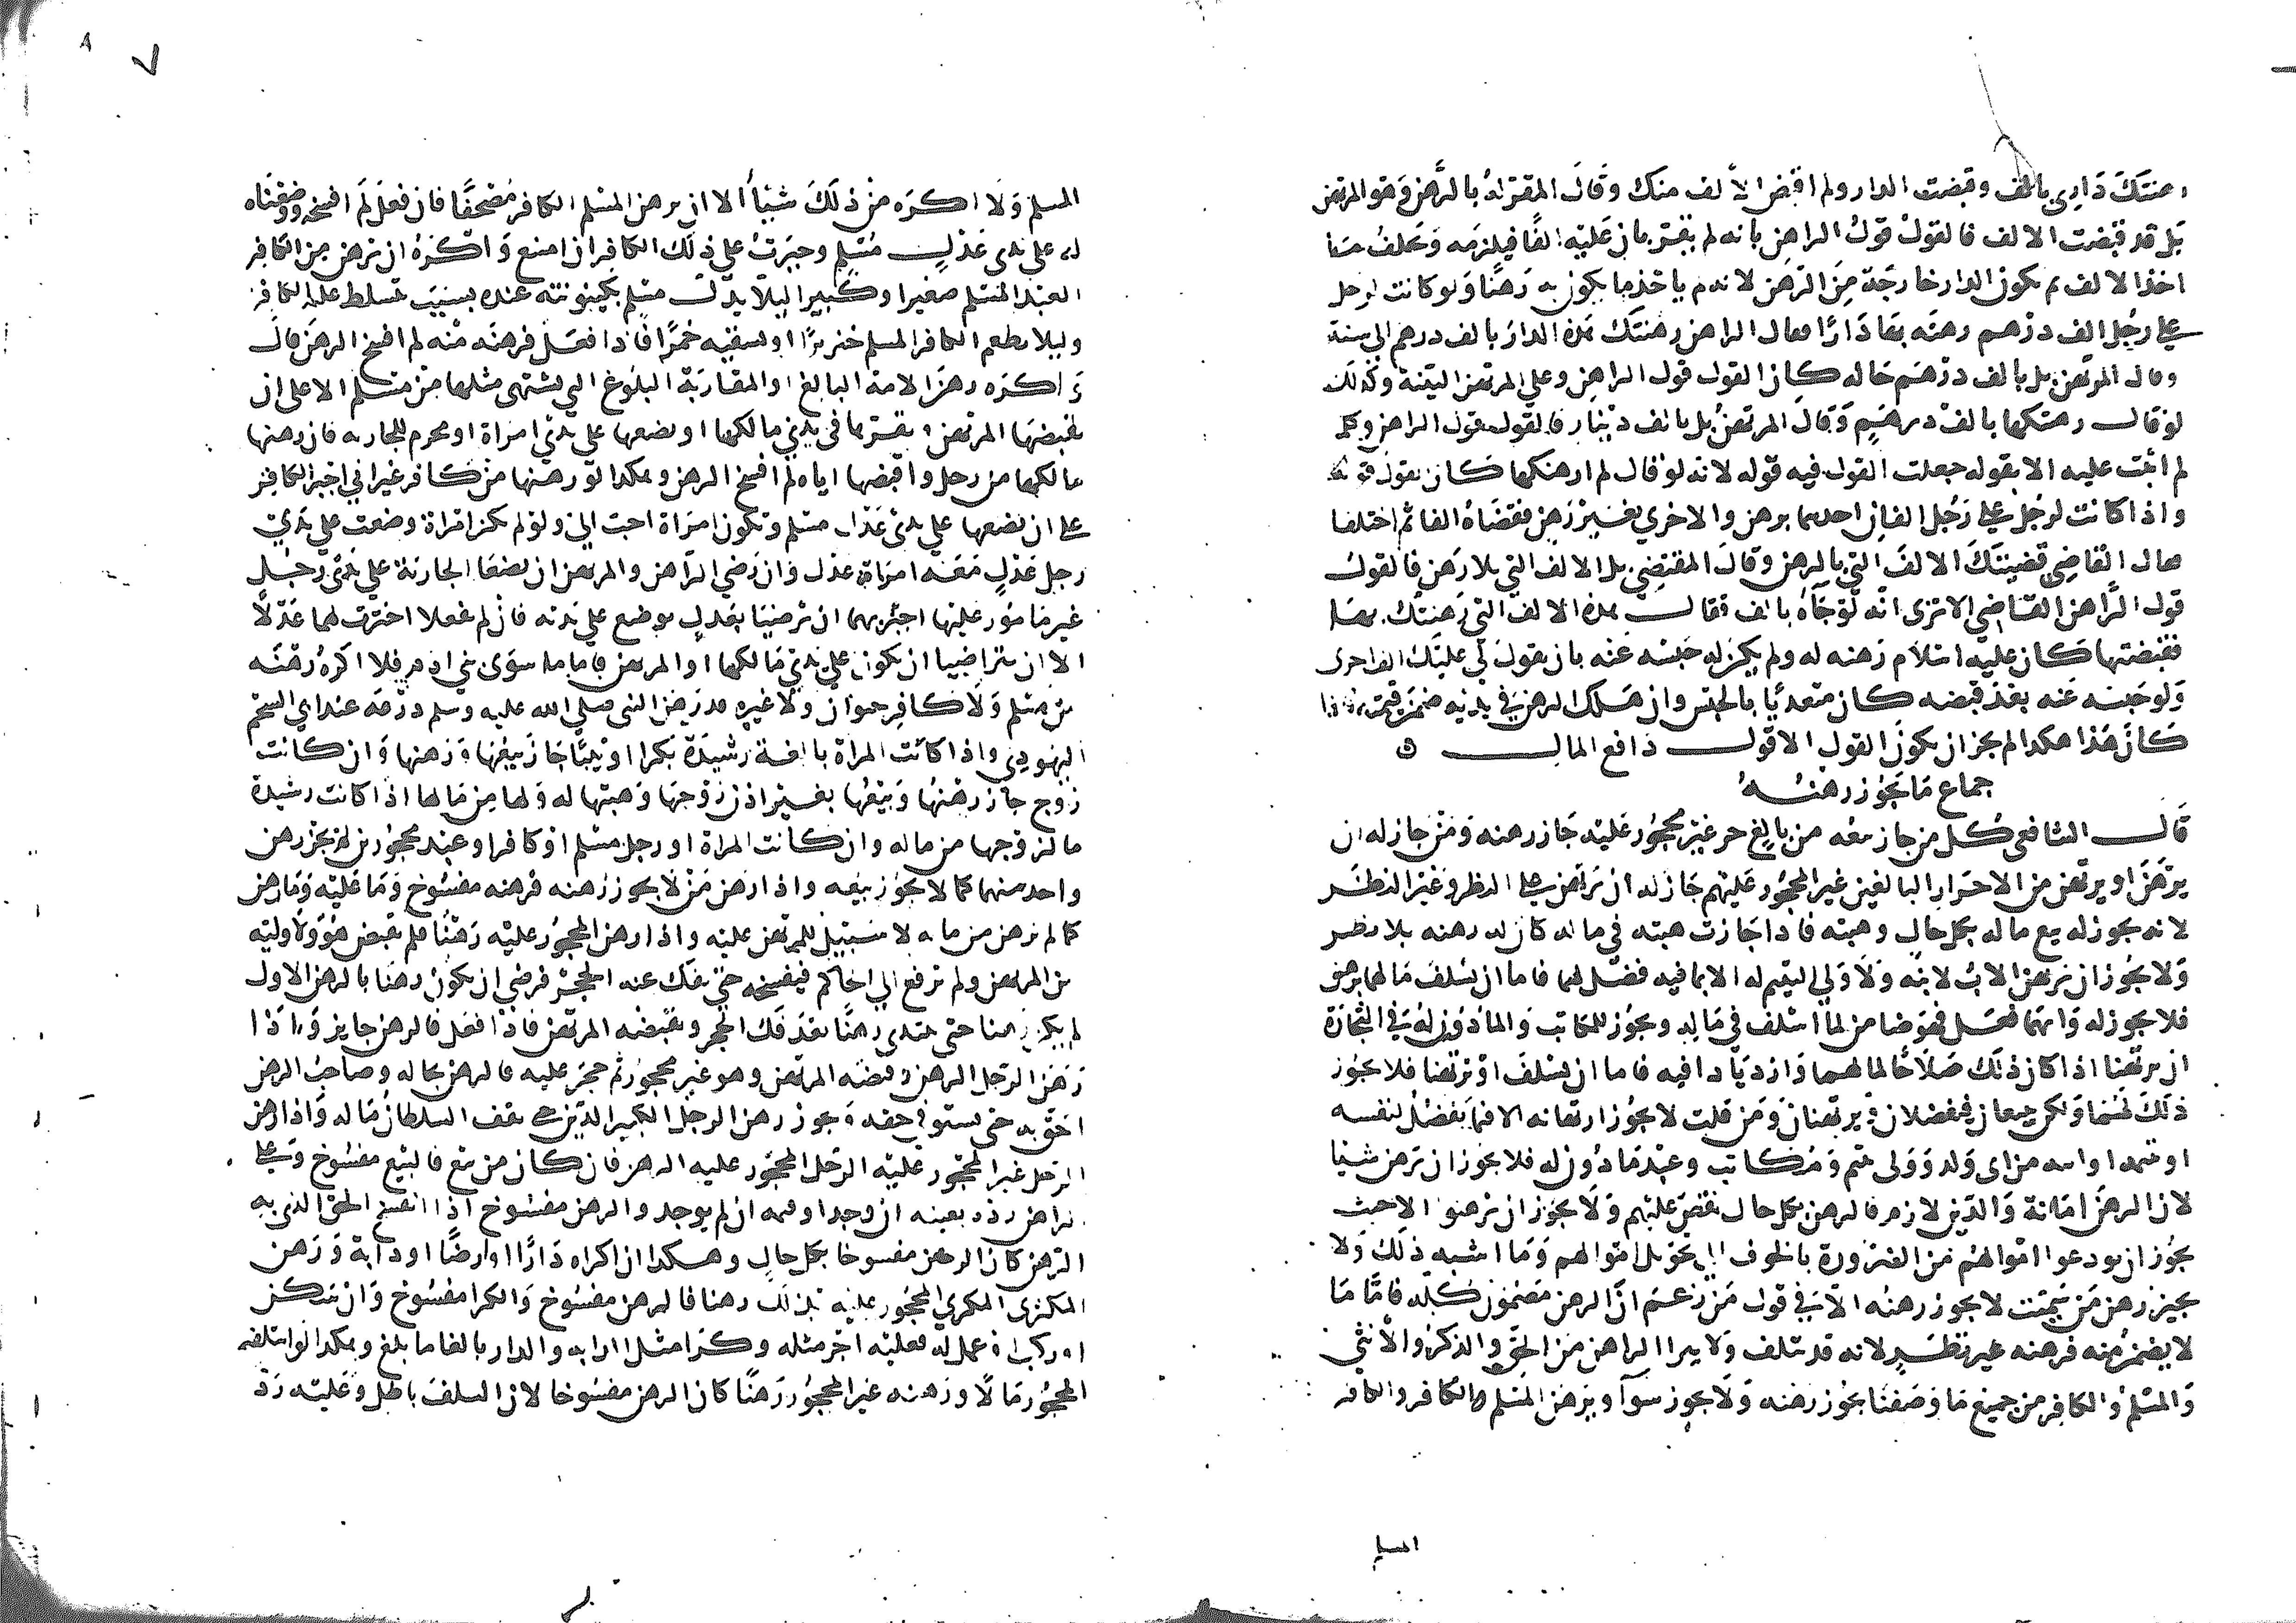 رهنتك داري بالف وقبضت الدار ولم اقبض الالف منك وقال المقر له بالرهن وهو المرتهن
بل قد قبضت الالف فالقول قول الراهن بانه لم يقر بان عليه الفا فيلزمه ويحلف ما
اخذ الالف ثم تكون الدار خارجة من الرهن لانه لم ياخذ ما يكون به رهنا ولو كانت لرجل
على رجل الف درهم رهنه بها دارا فقال الراهن رهنتك هذه الدار بالف درهم الى سنة
وقال المرتهن بل بالف درهم حالة كان القول قول الراهن وعلى المرتهن البينة وكذلك
لو قال رهنتكها بالف درهم وقال المرتهن بل بالف دينار فالقول قول الراهن وكل ما
لم اثبت عليه الا بقوله جعلت القول فيه قوله لانه لو قال لم ارهنكها كان القول قوله
واذا كانت لرجل على رجل الفان احدهما برهن والاخرى بغير رهن فقضاه الفا ثم اختلفا
فقال القاضي قضيتك الالف التي بالرهن وقال المقتضي بل الالف التي بلا رهن فالقول
قول الراهن القاضي الا ترى انه لو جاه بالف فقال هذه الالف التي رهنتك بها
فقبضتها كان عليه اسلام رهنه له ولم يكن له حبسه عنه بان يقول لي عليك الف اخرى
ولو حبسه عنه بعد قبضه كان متعديا بالحبس وان هلك الرهن في يديه ضمن قيمته فاذا
كان هذا هكذا لم يجز ان يكون القول الا قول دافع المال
جماع ما يجوز رهنه
قال الشافعي كل من جاز بيعه من بالغ حر غير محجور عليه جاز رهنه ومن جاز له ان
يرهن او يرتهن من الاحرار البالغين غير المحجور عليهم جاز له ان يرتهن على النظر وغير النظر
لانه يجوز له بيع ماله بكل حال وهبته فاذا جازت هبته في ماله كان له رهنه بلا نظر
ولا يجوز ان يرتهن الاب لابنه ولا ولي اليتيم له الا بما فيه فضل لهما فاما ان يسلف مالهما برهن
فلا يجوز له وايهما فعل فهو ضامن لما اسلف في ماله ويجوز للمكاتب والماذون له في التجارة
ان يرتهنا اذا كان ذلك صلاحا لمالهما وازديادا فيه فاما ان يسلفا او يرتهنا فلا يجوز
ذلك لهما ولكن يبيعان فيفضلان ويرتهنان ومن قلت لا يجوز ارتهانه الا فيما يفضل لنفسه
او يتيمه او ابنه من اب ولد وولي يتيم ومكاتب وعبد ماذون له فلا يجوز ان يرهن شيئا
لان الرهن امانة والدين لازم فالرهن بكل حال نقص عليهم ولا يجوز ان يرهنوا الا حيث
يجوز ان يودعوا اموالهم من الضرورة بالخوف الى تحويل اموالهم وما اشبه ذلك ولا
نجيز رهن من سميت لا يجوز رهنه الا في قول من زعم ان الرهن مضمون كله فاما ما
لا يضمن منه فرهنه غير نظر لانه قد يتلف ولا يبرا الراهن من الحق والذكر والانثى
والمسلم والكافر من جميع ما وصفنا يجوز رهنه ولا يجوز سوا ويرهن المسلم الكافر والكافر
المسلم
المسلم ولا اكره من ذلك شيئا الا ان يرهن المسلم الكافر مصحفا فان فعل لم افسخه ووضعناه
له على يدي عدل مسلم وجبرت على ذلك الكافر ان امتنع واكره ان يرهن من الكافر
العبد المسلم صغيرا وكبيرا ليلا يذل مسلم بكينونته عنده بسبب تسلط عليه الكافر
وليلا يطعم الكافر المسلم خنزيرا او يسقيه خمرا فاذا فعل فرهنه منه لم افسخ الرهن قال
واكره رهن الامة البالغ او المقاربة البلوغ التي يشتهى مثلها من مسلم الا على ان
يقبضها المرتهن ويقرها في يدي مالكها او يضعها على يدي امراة او محرم للجارية فان رهنها
مالكها من رجل واقبضها اياه لم افسخ الرهن وهكذا لو رهنها من كافر غير اني اجبر الكافر
على ان يضعها على يدي عدل مسلم وتكون امراة احب الي ولو لم تكن امراة وضعت على يدي
رجل عدل معه امراة عدل وان رضي الراهن والمرتهن ان يضعا الجارية على يدي رجل
غير مامور عليها اجبرتهما ان يرضيا بعدل توضع على يديه فان لم يفعلا اخترت لهما عدلا
الا ان يتراضيا ان تكون على يدي مالكها او المرتهن فاما ما سوى بني ادم فلا اكره رهنه
من مسلم ولا كافر حيوان ولا غيره قد رهن النبي صلى الله عليه وسلم درعه عند ابي الشحم
اليهودي واذا كانت المراة بالغة رشيدة بكرا او ثيبا جاز بيعها ورهنها وان كانت
زوج جاز رهنها وبيعها بغير اذن زوجها وهبتها له ولها من مالها اذا كانت رشيدة
ما لزوجها من ماله وان كانت المراة او رجل مسلم او كافر او عبد محجورين لم يجز رهن
واحد منهما كما لا يجوز بيعه واذا رهن من لا يجوز رهنه فرهنه مفسوخ وما عليه وما رهن
كما لم يرهن من ماله لا سبيل للمرتهن عليه واذا رهن المحجور عليه رهنا فلم يقبض هو ولا وليه
من المرتهن ولم يرفع الى الحاكم فيفسخه حتى يفك عنه الحجر فرضي ان يكون رهنا بالرهن الاول
لم يكن رهنا حتى يبتدي رهنا بعد فك الحجر ويقبضه المرتهن فاذا فعل فالرهن جايز واذا
رهن الرجل الرهن وقبضه المرتهن وهو غير محجور ثم حجر عليه فالرهن بحاله وصاحب الرهن
احق به حتى يستوفي حقه ويجوز رهن الرجل الكبير الدين حتى يقف السلطان ماله واذا رهن
الرجل غير المحجور عليه الرجل المحجور عليه الرهن فان كان من بيع فالبيع مفسوخ وعلى
الراهن رده بعينه ان وجد او قيمته ان لم يوجد والرهن مفسوخ اذا انفسخ الحق الذي به
الرهن كان الرهن مفسوخا بكل حال وهكذا ان اكراه دارا او ارضا او دابة ورهن
المكتري المكري المحجور عليه بذلك رهنا فالرهن مفسوخ والكرا مفسوخ وان سكن
او ركب او عمل له فعليه اجر مثله وكرا مثل الدابة والدار بالغا ما بلغ وهكذا لو اسلفه
المحجور مالا ورهنه غير المحجور رهنا كان الرهن مفسوخا لان السلف باطل وعليه رد